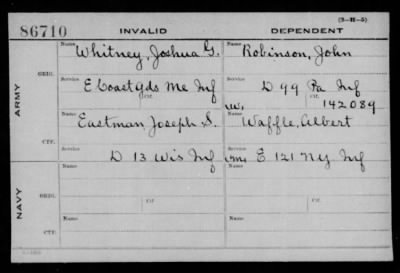 (3-H-5)
86710 INVALID DEPENDENT
Name Whitney, Joshua G. Name Robinson, John
ARMY
ORIG. Service E Coast Gds Me Inf Service D 99 Pa Inf
Ctf. Ctf. 142089
W,
Name Eastman, Joseph S. Name Waffle, Albert
CTF. Service D 13 Wis Inf Service E 121 NY Inf
NAVY
ORIG. Name Name
Service Ctf. Service Ctf.
Name Name
CTF. Service Service